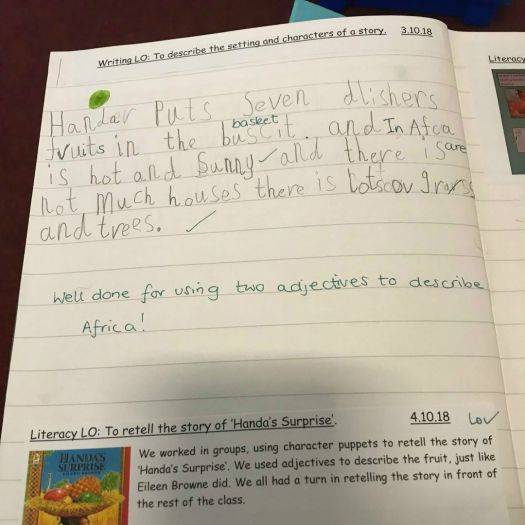 Writing LO: To describe the setting and characters of a story. 3.10.18
Literacy
Handar Puts Seven dlishers
basket
fruits in the buscit. and In Afca
is hot and Sunny and there is are
not much houses there is lotscov grars
and trees.
Well done for using two adjectives to describe
Africa!
Literacy LO: To retell the story of 'Handa's Surprise'. 4.10.18
HANDA'S
SURPRISE
We worked in groups, using character puppets to retell the story of
'Handa's Surprise'. We used adjectives to describe the fruit, just like
Eileen Browne did. We all had a turn in retelling the story in front of
the rest of the class.